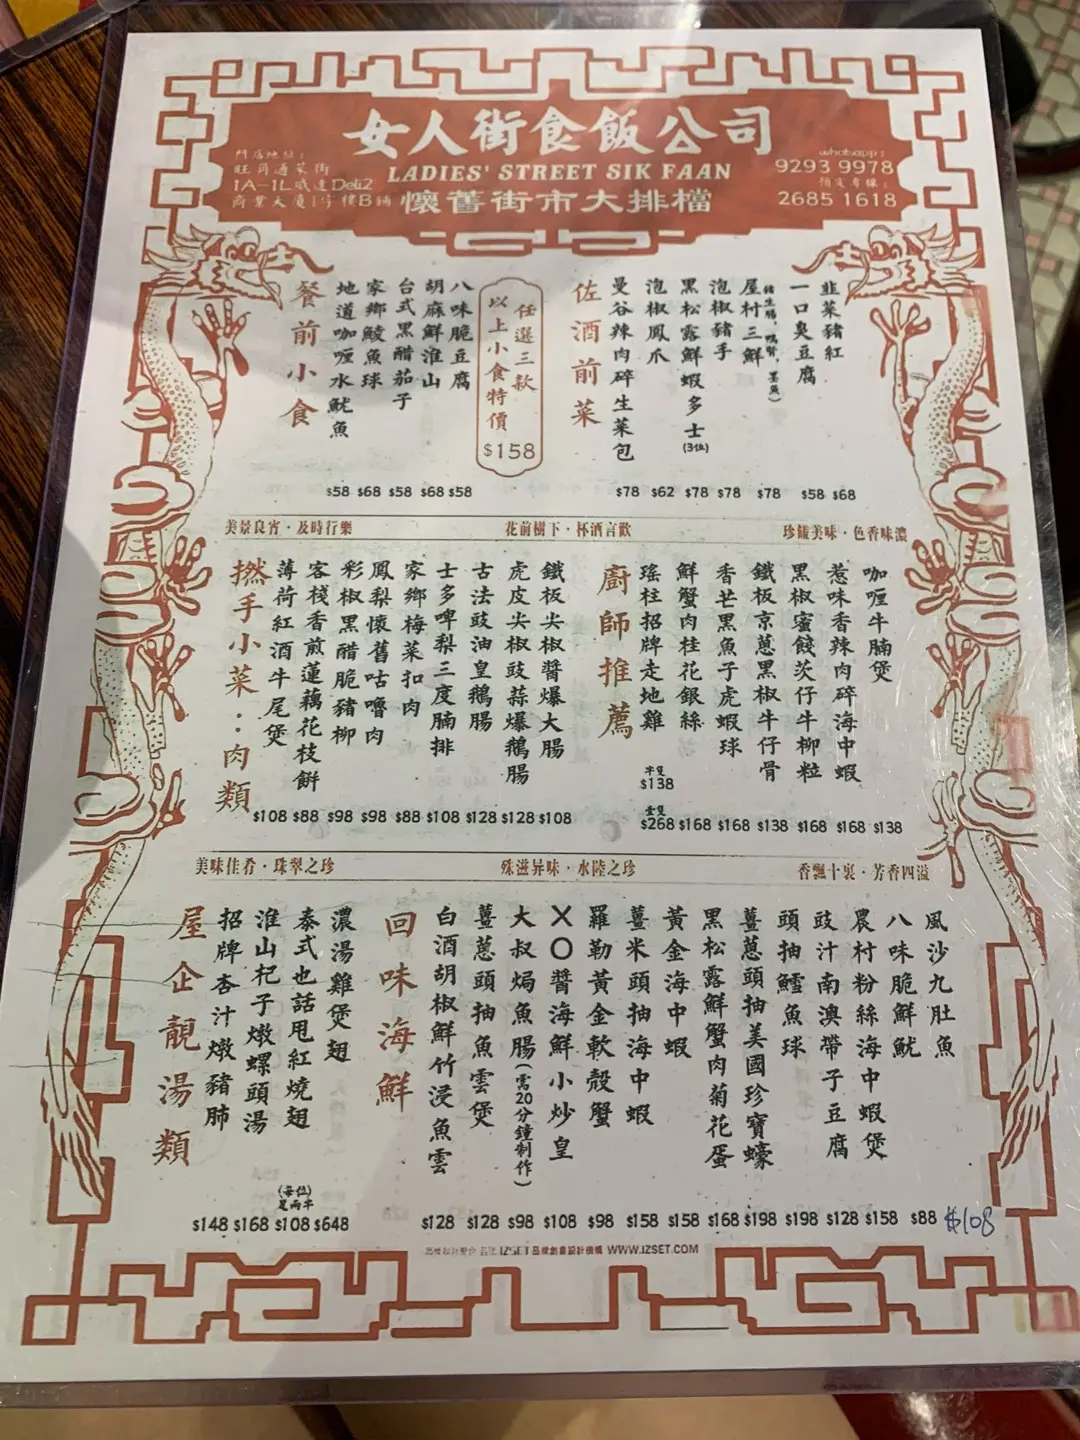 女人街食飯公司
LADIES' STREET SIK FAAN
懷舊街市大排檔
門店地址：
旺角通菜街
1A-1L威達Deli2
商業大廈1字樓B鋪
whatsapp：
9293 9978
預定專線：
2685 1618
餐前小食
地道咖喱水魷魚
$58
家鄉鯪魚球
$68
台式黑醋茄子
$58
胡麻鮮淮山
$68
八味脆豆腐
$58
以上小食特價
任選三款
$158
佐酒前菜
曼谷辣肉碎生菜包
$78
泡椒鳳爪
$62
黑松露鮮蝦多士(3位)
$78
泡椒豬手
$78
屋村三鮮
$78
一口臭豆腐
$58
韭菜豬紅
$68
美景良宵·及時行樂
花前樹下·杯酒言歡
珍饈美味·色香味濃
撚手小菜：肉類
薄荷紅酒牛尾煲
$108
客棧香煎蓮藕花枝餅
$88
彩椒黑醋脆豬柳
$98
鳳梨懷舊咕嚕肉
$98
家鄉梅菜扣肉
$88
士多啤梨三度腩排
$108
古法豉油皇鵝腸
$128
虎皮尖椒豉蒜爆鵝腸
$128
鐵板尖椒醬爆大腸
$108
廚師推薦
瑤柱招牌走地雞
半隻
$138
壹隻
$268
鮮蟹肉桂花銀絲
$168
香芒黑魚子虎蝦球
$168
鐵板京蔥黑椒牛仔骨
$138
黑椒蜜餞茨仔牛柳粒
$168
惹味香辣肉碎海中蝦
$168
咖喱牛腩煲
$138
美味佳肴·珠翠之珍
殊滋异味·水陸之珍
香飄十裏·芳香四溢
屋企靚湯類
招牌杏汁燉豬肺
$148
淮山杞子燉螺頭湯
$168
泰式也話甩紅燒翅
(每位)
足兩半
$108
濃湯雞煲翅
$648
回味海鮮
白酒胡椒鮮竹浸魚雲
$128
薑蔥頭抽魚雲煲
$128
大叔焗魚腸(需20分鐘制作)
$98
XO醬海鮮小炒皇
$108
羅勒黃金軟殼蟹
$98
薑米頭抽海中蝦
$158
黃金海中蝦
$158
黑松露鮮蟹肉菊花蛋
$168
薑蔥頭抽美國珍寶蠔
$198
頭抽鱈魚球
$198
豉汁南澳帶子豆腐
$128
農村粉絲海中蝦煲
$158
八味脆鮮魷
$88
風沙九肚魚
$108
IZSET品牌創意設計機構 WWW.IZSET.COM